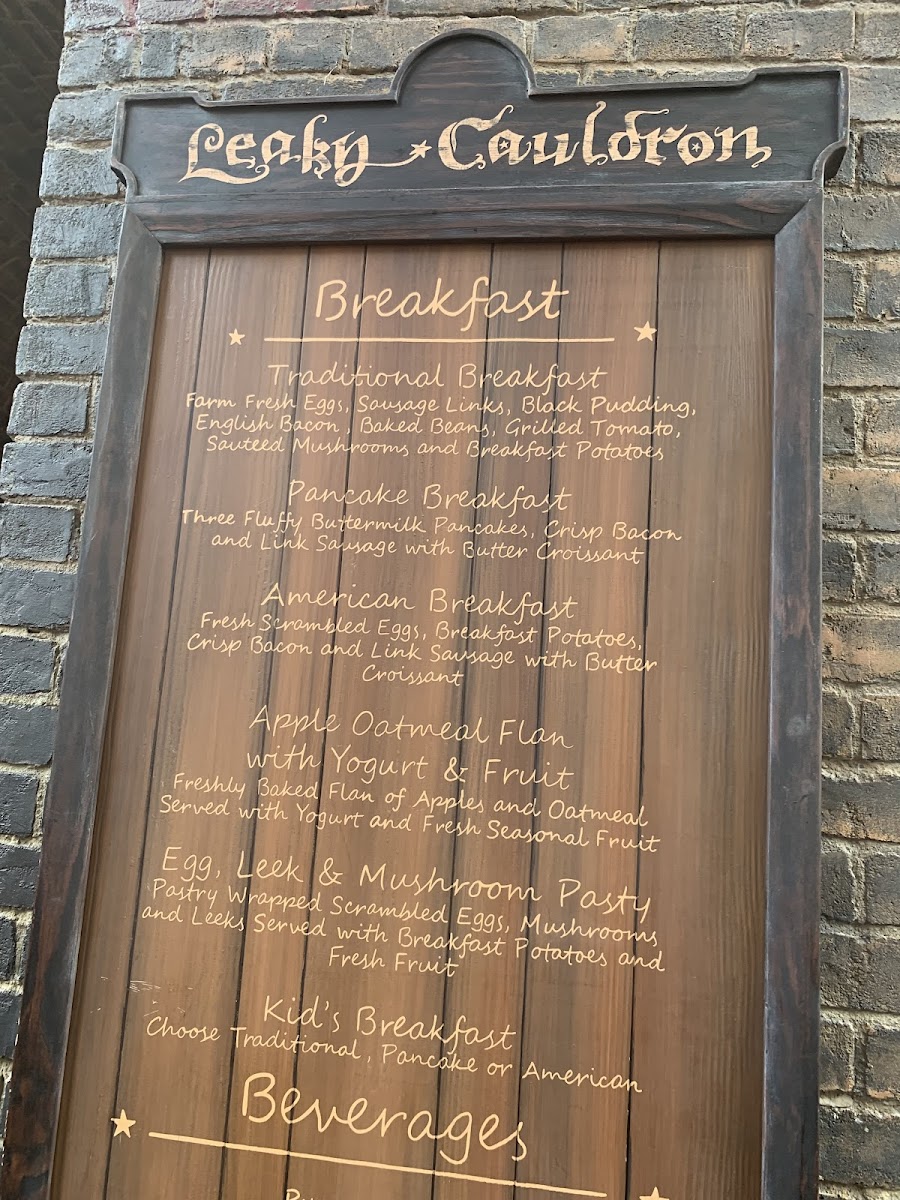 Leaky Cauldron
Breakfast
Traditional Breakfast
Farm Fresh Eggs, Sausage Links, Black Pudding,
English Bacon, Baked Beans, Grilled Tomato,
Sauteed Mushrooms and Breakfast Potatoes
Pancake Breakfast
Three Fluffy Buttermilk Pancakes, Crisp Bacon
and Link Sausage with Butter Croissant
American Breakfast
Fresh Scrambled Eggs, Breakfast Potatoes,
Crisp Bacon and Link Sausage with Butter
Croissant
Apple Oatmeal Flan
with Yogurt & Fruit
Freshly Baked Flan of Apples and Oatmeal
Served with Yogurt and Fresh Seasonal Fruit
Egg, Leek & Mushroom Pasty
Pastry Wrapped Scrambled Eggs, Mushrooms
and Leeks Served with Breakfast Potatoes and
Fresh Fruit
Kid's Breakfast
Choose Traditional, Pancake or American
Beverages